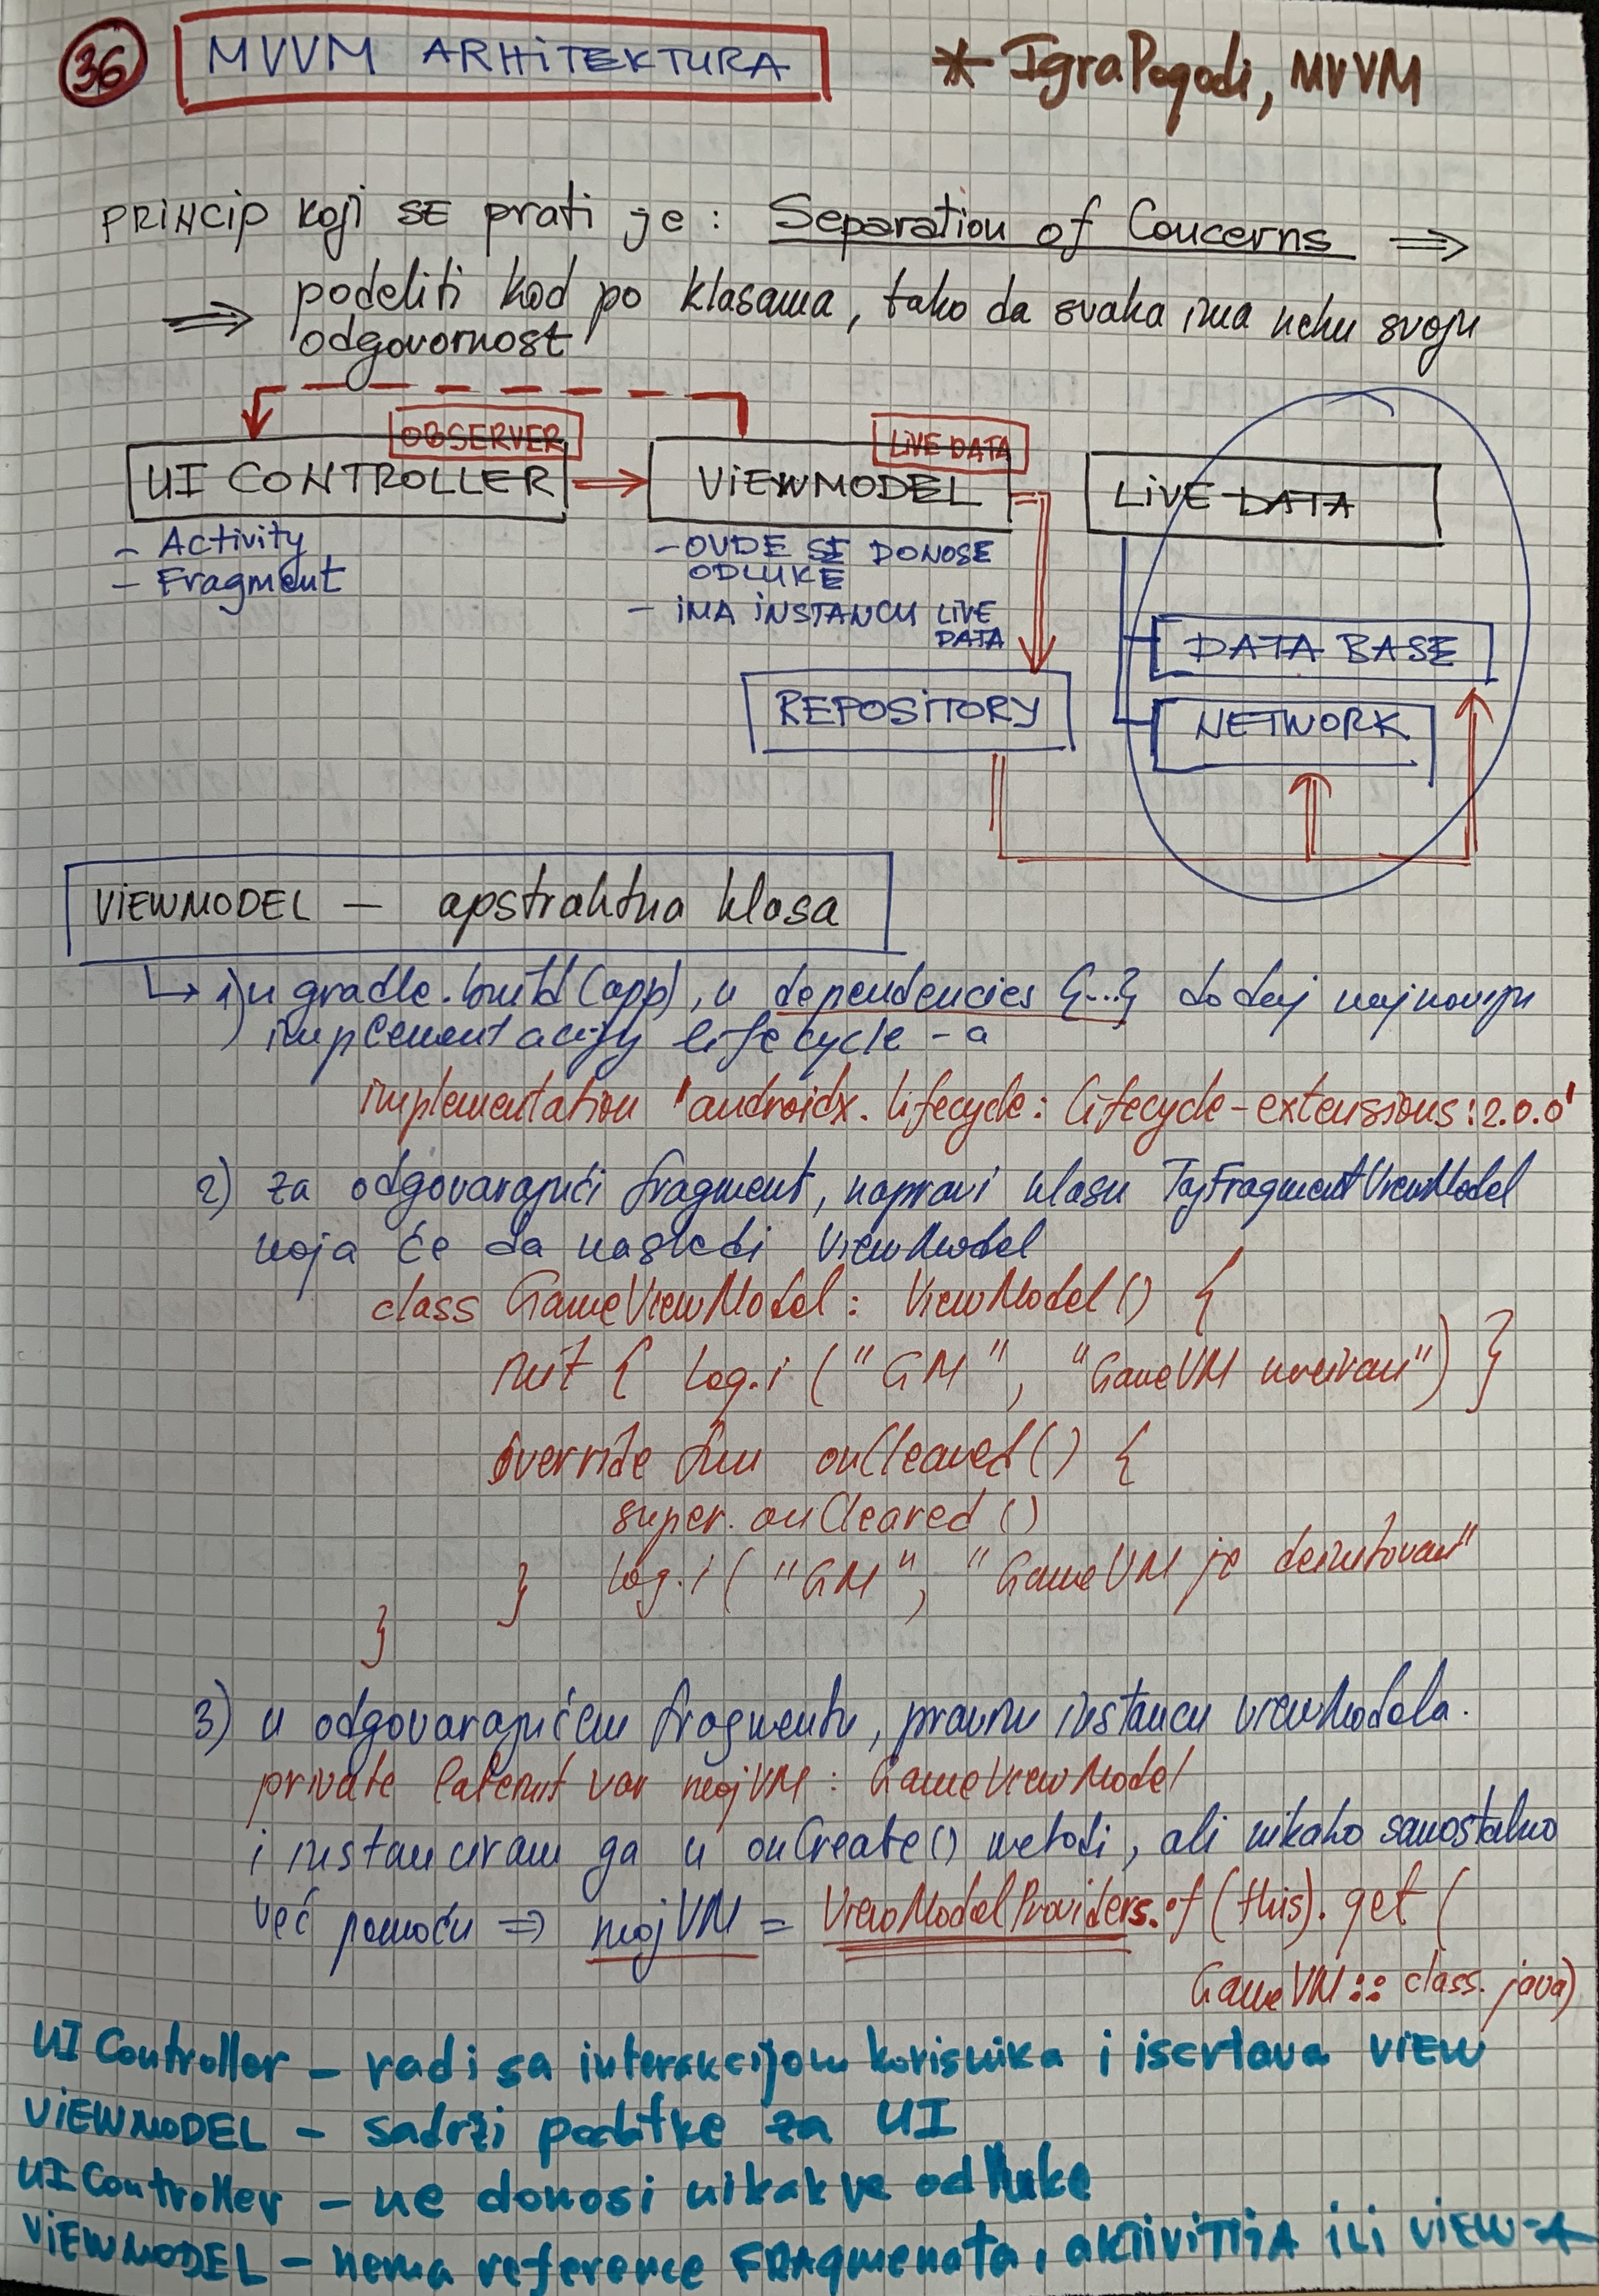 36 MVVM ARHITEKTURA * IgraPogodi, MVVM
PRINCIP koji SE prati je: Separation of Concerns ⇒
⇒ podeliti kod po klasama, tako da svaka ima neku svoju
odgovornost
OBSERVER LIVE DATA
UI CONTROLLER VIEWMODEL LIVE DATA
- Activity
- Fragment
- OVDE SE DONOSE
ODLUKE
- IMA INSTANCU LIVE
DATA
DATA BASE
REPOSITORY NETWORK
VIEWMODEL - apstraktna klasa
↳ 1) u gradle.build(app), u dependencies {...} dodaj najnoviju
implementaciju lifecycle-a
implementation 'androidx.lifecycle:lifecycle-extensions:2.0.0'
2) za odgovarajući fragment, napravi klasu TajFragmentViewModel
koja će da nasledi ViewModel
class GameViewModel : ViewModel() {
init { Log.i ("GM", "GameVM kreiran") }
override fun onCleared() {
super.onCleared()
} Log.i ("GM", "GameVM je
}
3) u odgovarajućem fragmentu, pravim instancu viewModela.
private lateinit var mojVM : GameViewModel
i instanciram ga u onCreate() metodi, ali nikako samostalno
već pomoću ⇒ mojVM = ViewModelProviders.of(this).get(
GameVM::class.java)
UI Controller - radi sa interakcijom korisnika i iscrtava VIEW
VIEWMODEL - sadrži podatke za UI
UI Controller - ne donosi nikakve odluke
VIEWMODEL - nema reference FRAgmenata, aktivitija ili VIEW-A